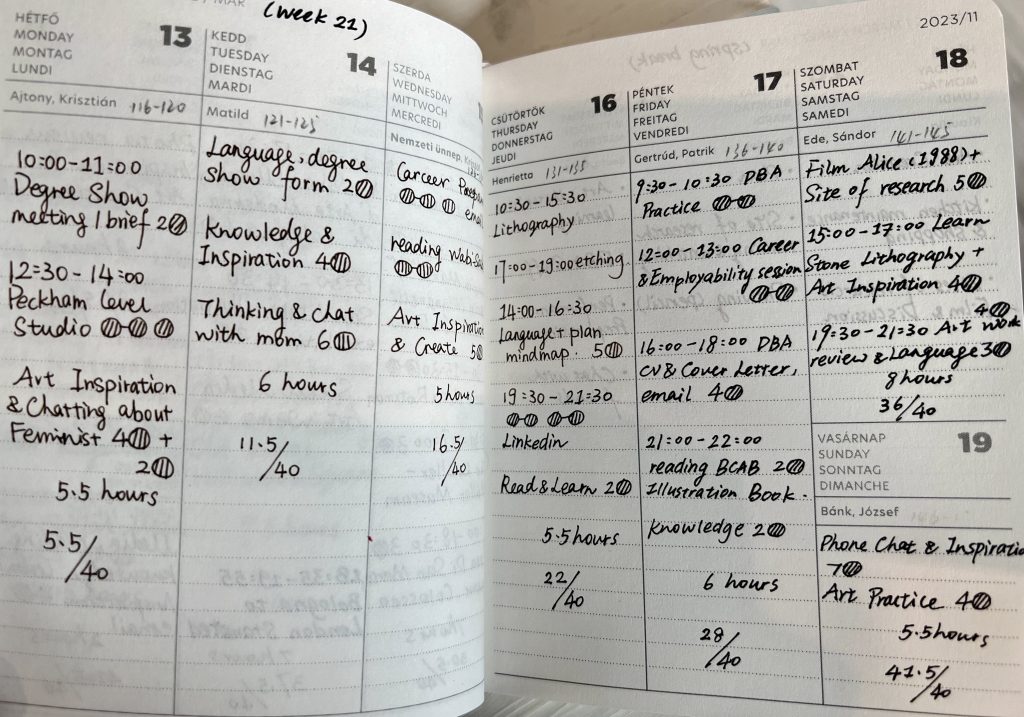 (Week 21)
HÉTFŐ
MONDAY
MONTAG
LUNDI
13
Ajtony, Krisztián 116-120
10:00-11:00
Degree Show
meeting / brief 2
12:30 - 14:00
Peckham level
Studio
Art Inspiration
& Chatting about
Feminist 4 +
2
5.5 hours
5.5/40
KEDD
TUESDAY
DIENSTAG
MARDI
14
Matild 121-125
Language, degree
show form 2
Knowledge &
Inspiration 4
Thinking & chat
with mom 6
6 hours
11.5/40
SZERDA
WEDNESDAY
MITTWOCH
MERCREDI
Nemzeti ünnep,
Career
email
reading Wabi-
Art Inspiration
& Create 5
5 hours
16.5/40
2023/11
(spring break)
CSÜTÖRTÖK
THURSDAY
DONNERSTAG
JEUDI
16
Henrietta 131-135
10:30 - 15:30
Lithography
17:00-19:00 etching
14:00 - 16:30
Language + plan
mindmap. 5
19:30 - 21:30
Linkedin
Read & Learn 2
5.5 hours
22/40
PÉNTEK
FRIDAY
FREITAG
VENDREDI
17
Gertrúd, Patrik 136-140
9:30 - 10:30 DBA
Practice
12:00 - 13:00 Career
& Employability session
16:00 - 18:00 DBA
CV & Cover Letter,
email 4
21:00 - 22:00
reading BCAB 2
Illustration Book.
Knowledge 2
6 hours
28/40
SZOMBAT
SATURDAY
SAMSTAG
SAMEDI
18
Ede, Sándor 141-145
Film Alice (1988) +
Site of research 5
15:00 - 17:00 Learn
Stone Lithography +
Art Inspiration 4
4
19:30 - 21:30 Art work
review & Language 3
8 hours
36/40
VASÁRNAP
SUNDAY
SONNTAG
DIMANCHE
19
Bánk, József
Phone Chat & Inspiratio
7
Art Practice 4
5.5 hours
41.5/40